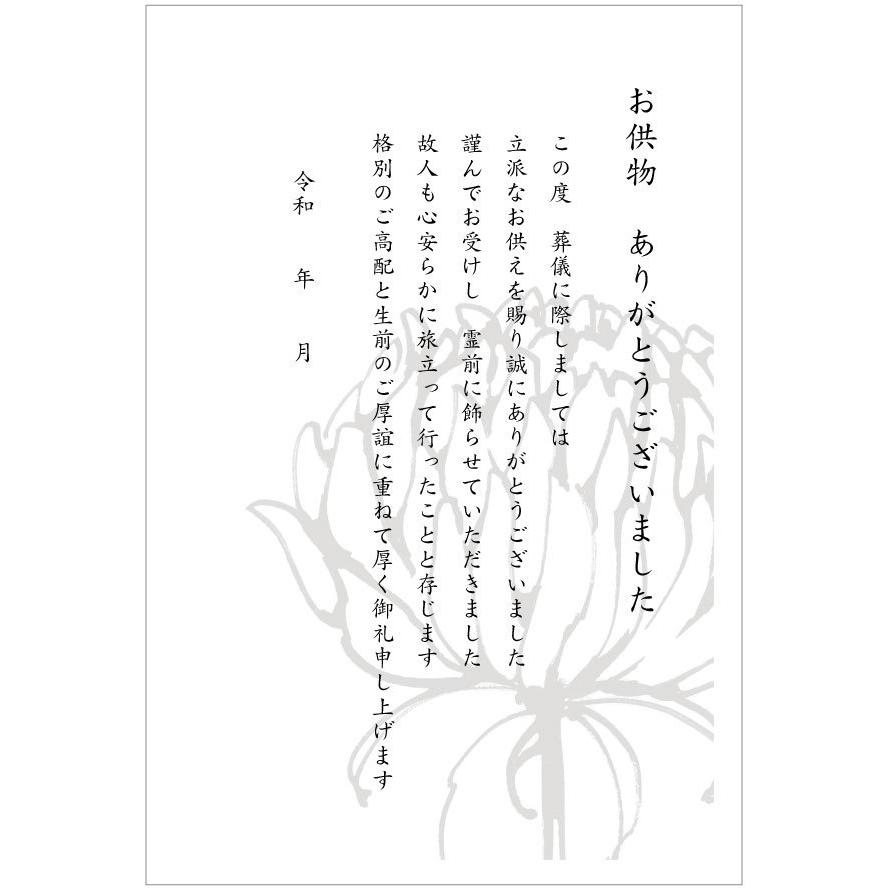 お供物　ありがとうございました
この度　葬儀に際しましては
立派なお供えを賜り誠にありがとうございました
謹んでお受けし　霊前に飾らせていただきました
故人も心安らかに旅立って行ったことと存じます
格別のご高配と生前のご厚誼に重ねて厚く御礼申し上げます
令和　　年　　月